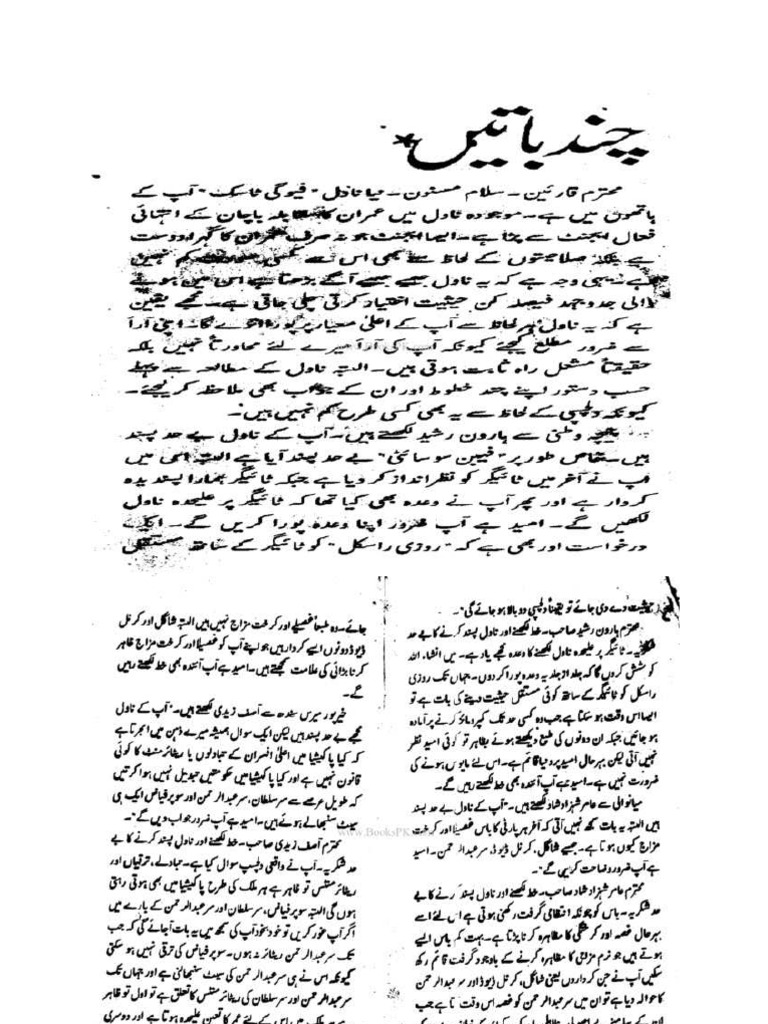 چند باتیں
محترم قارئین۔ سلام مسنون۔ نیا ناول "فیوگی ٹاسک" آپ کے
ہاتھوں میں ہے۔ موجودہ ناول میں عمران کا مقابلہ پاچان کے انتہائی
فعال ایجنٹ سے پڑتا ہے۔ ایسا ایجنٹ جو نہ صرف عمران کا گہرا دوست
ہے بلکہ صلاحیتوں کے لحاظ سے بھی اس سے کسی کم نہیں
ہے یہی وجہ ہے کہ یہ ناول جیسے جیسے آگے بڑھتا ہے اس میں ہونے
والی جدوجہد فیصلہ کن حیثیت اختیار کرتی چلی جاتی ہے۔ مجھے یقین
ہے کہ یہ ناول ہر لحاظ سے آپ کے اعلیٰ معیار پر پورا اترے گا۔ اپنی آرا
سے ضرور مطلع کیجئے کیونکہ آپ کی آرا میرے لئے محاورتاً نہیں بلکہ
حقیقتاً مشعل راہ ثابت ہوتی ہیں۔ البتہ ناول کے مطالعہ سے پہلے
حسب دستور اپنے چند خطوط اور ان کے جواب بھی ملاحظہ کر لیجئے۔
کیونکہ دلچسپی کے لحاظ سے یہ بھی کسی طرح کم نہیں ہیں۔
وطنی سے ہارون رشید لکھتے ہیں۔ آپ کے ناول بے حد پسند
ہیں۔ خاص طور پر "فیبن سوسائٹی" بے حد پسند آیا ہے البتہ اس میں
آپ نے آخر میں ٹائیگر کو نظر انداز کر دیا ہے جبکہ ٹائیگر ہمارا پسندیدہ
کردار ہے اور پھر آپ نے وعدہ بھی کیا تھا کہ ٹائیگر پر علیحدہ ناول
لکھیں گے۔ امید ہے آپ ضرور اپنا وعدہ پورا کریں گے۔ ایک
درخواست اور بھی ہے کہ "روزی راسکل" کو ٹائیگر کے ساتھ مستقل
حیثیت دے دی جائے تو یقیناً دلچسپی دوبالا ہو جائے گی"۔
محترم ہارون رشید صاحب۔ خط لکھنے اور ناول پسند کرنے کا بے حد
شکریہ۔ ٹائیگر پر علیحدہ ناول لکھنے کا وعدہ مجھے یاد ہے۔ میں انشاء اللہ
کوشش کروں گا کہ جلد از جلد یہ وعدہ پورا کر دوں۔ جہاں تک روزی
راسکل کو ٹائیگر کے ساتھ کوئی مستقل حیثیت دینے کی بات ہے تو
ایسا اس وقت ہو سکتا ہے جب وہ کسی حد تک کمپرومائز کرنے پر آمادہ
ہو جائیں جبکہ ان دونوں کی طبع دیکھتے ہوئے بظاہر تو کوئی امید نظر
نہیں آتی لیکن بہرحال امید پر دنیا قائم ہے۔ اس لئے مایوس ہونے کی
ضرورت نہیں ہے۔ امید ہے آپ آئندہ بھی خط لکھتے رہیں گے۔
میانوالی سے عامر شہزاد شاد لکھتے ہیں۔ "آپ کے ناول بے حد پسند
ہیں البتہ یہ بات سمجھ نہیں آتی کہ آخر ہر پارٹی کا باس غصیلا اور کرخت
مزاج کیوں ہوتا ہے۔ جیسے شاگل، کرنل ڈیوڈ، سر عبدالرحمن۔ امید
ہے آپ ضرور وضاحت کریں گے"۔
محترم عامر شہزاد شاد صاحب۔ خط لکھنے اور ناول پسند کرنے کا بے
حد شکریہ۔ باس کو چونکہ انتظامی گرفت رکھنی ہوتی ہے اس لئے اسے
بہرحال غصہ اور کرختگی کا مظاہرہ کرنا پڑتا ہے۔ بہت کم باس ایسے
ہوتے ہیں جو نرم مزاجی کا مظاہرہ کرنے کے باوجود گرفت قائم رکھ
سکیں آپ نے جن کرداروں یعنی شاگل، کرنل ڈیوڈ اور سر عبدالرحمن
کا حوالہ دیا ہے تو ان میں سر عبدالرحمن کو غصہ اس وقت آتا ہے جب
جائے۔ وہ طبعاً غصیلے اور کرخت مزاج نہیں ہیں البتہ شاگل اور کرنل
ڈیوڈ دونوں ایسے کردار ہیں جو اپنے آپ کو غصیلا اور کرخت مزاج ظاہر
کرنا بڑائی کی علامت سمجھتے ہیں۔ امید ہے آپ آئندہ بھی خط لکھتے رہیں
گے۔
خیر پور میرس سندھ سے آصف زیدی لکھتے ہیں۔ "آپ کے ناول
مجھے بے حد پسند ہیں لیکن ایک سوال ہمیشہ میرے ذہن میں ابھرتا ہے
کہ کیا پاکیشیا میں اعلیٰ افسران کے تبادلوں یا ریٹائرمنٹ کا کوئی
قانون نہیں ہے اور کیا پاکیشیا میں حکومتیں تبدیل نہیں ہوا کرتیں
کہ طویل عرصے سے سر سلطان، سر عبدالرحمن اور سوپر فیاض ایک ہی
سیٹ سنبھالے ہوئے ہیں۔ امید ہے آپ ضرور جواب دیں گے"۔
محترم آصف زیدی صاحب۔ خط لکھنے اور ناول پسند کرنے کا بے
حد شکریہ۔ آپ نے واقعی دلچسپ سوال کیا ہے۔ تبادلے، ترقیاں اور
ریٹائرمنٹس تو ظاہر ہے ہر ملک کی طرح پاکیشیا میں بھی ہوتی رہتی
ہوں گی البتہ سوپر فیاض، سر سلطان اور سر عبدالرحمن کے بارے میں
اگر آپ غور کریں تو خود بخود آپ کی سمجھ میں یہ بات آ جائے گی کہ جب
تک سر عبدالرحمن ریٹائر نہ ہوں۔ سوپر فیاض کی ترقی نہیں ہو سکتی
کیونکہ اس نے ہی سر عبدالرحمن کی سیٹ سنبھالنی ہے اور جہاں تک
سر عبدالرحمن اور سر سلطان کی ریٹائرمنٹس کا تعلق ہے تو اول تو ظاہر
ہے ملک میں اس کے لئے عمر کا تعین علیحدہ ہوتا ہے اور دوسری
www.BooksPK